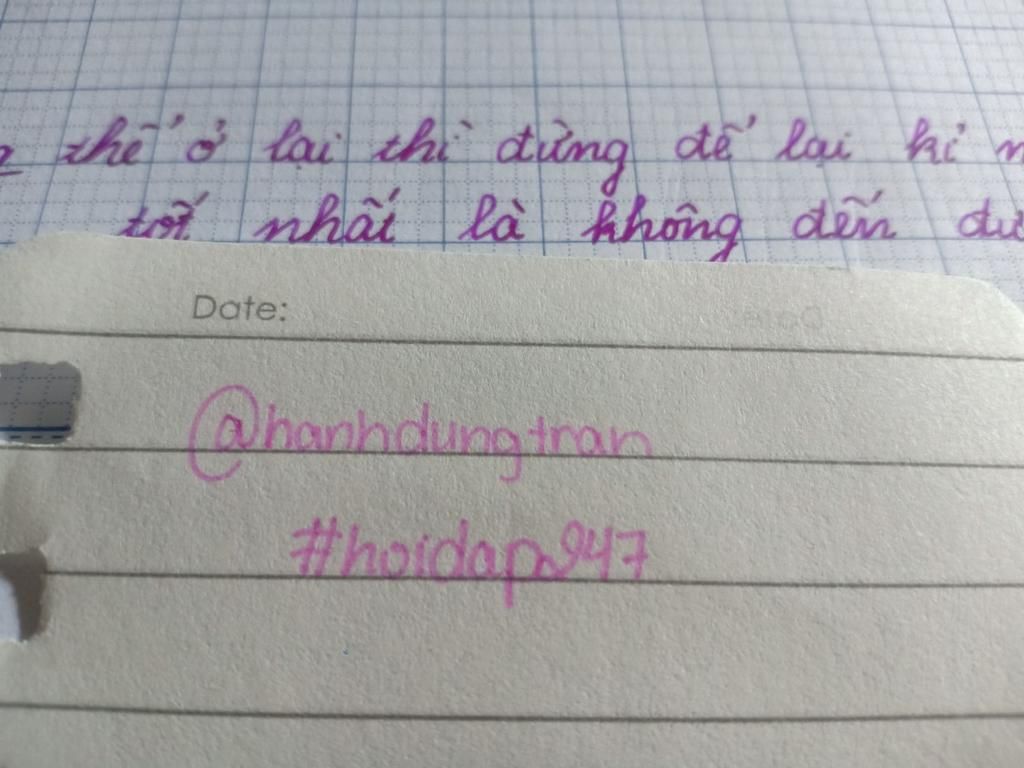 thể ở lại thì đừng để lại kỉ
tốt nhất là không đến
Date:
@hanhdungtran
#hoidap247